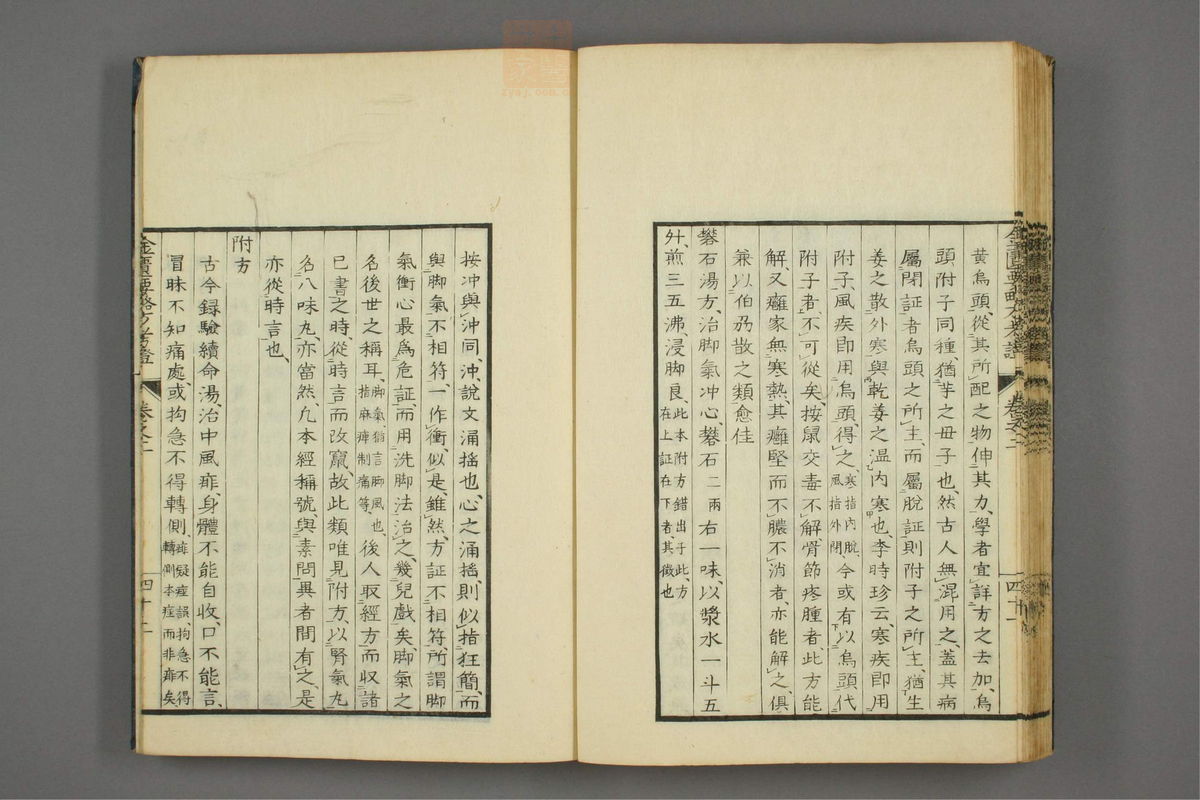 黄烏頭、從其所配之物伸其力、學者宜詳方之去加、烏
頭附子同種、猶芋之毋子也、然古人無混用之、蓋其病
屬閉証者烏頭之所主、而屬脫証則附子之所主、猶生
姜之散外寒與乾姜之温内寒也、李時珍云、寒疾即用
附子、風疾即用烏頭、得之、寒指内脫、風指外閉、今或有以烏頭代
附子者、不可從矣、按鼠交毒不解、骨節疼腫者、此方能
解、又癰家無寒熱、其癰堅而不膿不消者、亦能解之、俱
兼以伯刕散之類愈佳
礬石湯方、治脚氣冲心、礬石二兩右一味、以漿水一斗五
升、煎三五沸浸脚良、此本附方錯出于此、方在上証在下者、其徵也
四十一
按冲與沖同、沖、說文涌揺也、心之涌揺、則似指狂簡、而
與脚氣不相符、一作衝、似是、雖然、方証不相符、所謂脚
氣衝心最爲危証、而用洗脚法治之、幾兒戲矣、脚氣之
名後世之稱耳、脚氣、猶言脚風也、指麻痺制痛等、後人取經方而収諸
已書之時、從時言而改竄、故此類唯見附方、以腎氣丸
名八味丸、亦當然、凢本經稱號、與素問異者間有之、是
亦從時言也、
附方
古今録驗續命湯治中風痱、身體不能自收、口不能言、
冒昧不知痛處、或拘急不得轉側、痱疑痙誤、拘急不得轉側本痙而非痱矣
金匱要略方考證
卷之二
四十二